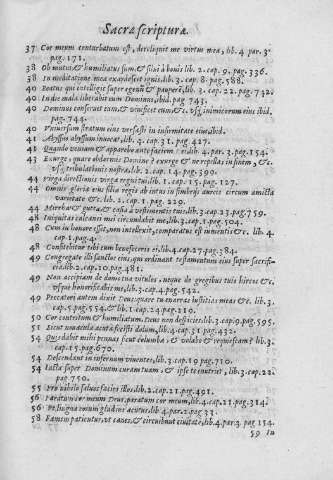 Sacræ scripturæ.
37 Cor meum conturbatum est, dereliquit me virtus mea, lib. 4 par. 3.
pag. 171.
38 Ob mutui & humiliatus sum, & silui à bonis lib. 2. cap. 9. pag. 336.
38 In meditatione mea exardescet ignis lib. 3. cap. 8. pag. 588.
40 Beatus qui intelligit super egenũ & pauperẽ, lib. 3. cap. 22. pag. 732.
40 In die mala liberabit eum Dominus, ibid. pag 743.
40 Dominus conseruet eum, & viuificet eum, & c. vsq; inimicorum eius ibid,
pag. 744.
40 Vniuersum stratum eius versasti in infirmitate eius, ibid.
41 Abyssus abyssum inuocat, lib. 4. cap. 31. pag. 427.
41 Quando veniam & apparebo ante faciem lib. 4. par. 3. pag. 154.
43 Exurge, quare obdormis Domine? exurge & ne repellas in finem, & c.
vsq; tribulationis nostræ, lib. 2. cap. 14. pag. 390.
44 Virga directionis virga regni tui, lib. 1. cap. 15. pag. 127.
44 Omnis gloria eius filiæ regis ab intus in fimbrijs aureis circum amicta
varietate & c. lib. 2. cap. 1. pag. 229.
44 Mirrha & gutta & casia à vestimentis tuis, lib. 3. cap. 23. pag. 759.
48 Iniquitas calcanei mei circundabit me, lib. 3. cap. 1. pag. 504.
48 Cum in honore esset, non intellexit, comparatus est iumentis & c. lib. 4
cap. 1. pag. 4.
48 Confitebitur tibi cum benefeceris ei, lib. 4. cap. 27. pag. 384.
49 Congregate illi sanctos eius, qui ordinant testamentum eius super sacrifi-
cia, lib. 2. cap. 20. pag. 481.
49 Non accipiam de domo tua vitulos, neque de gregibus tuis hircos & c.
vsque honorificabis me, lib. 3. cap. 4. pag. 542.
49 Peccatori autem dixit Deus: quare tu enarras iustitias meas & c. lib. 3.
cap. 5. pag. 554. & lib. 1. cap. 24. pag. 210.
50 Cor contritum & humiliatum, Deus non despicies, lib. 3. cap. 9. pag. 595.
51 Sicut nouacula acuta fecisti dolum, lib. 4. cap. 31. pag. 432.
54 Quis dabit mihi pennas sicut columbæ, & volabo & requiescam? lib. 3.
cap. 15. pag. 670.
54 Descendant in infernum viuentes, lib. 3. cap. 19. pag. 710.
54 Iacta super Dominum curam tuam, & ipse te enutriet, lib. 3. cap. 22.
pag. 750.
55 Pro nihilo saluos facies illos, lib. 2. cap. 21. pag. 491.
56 Paratum cor meum Deus, paratum cor meum, lib. 4. cap. 21. pag. 314.
56 Et lingua eorum gladius acutus, lib. 4. par. 2. pag 33.
58 Famem patientur, vt canes, & circuibunt ciuitatẽ, lib. 4. par. 3. pag 154.
59 In